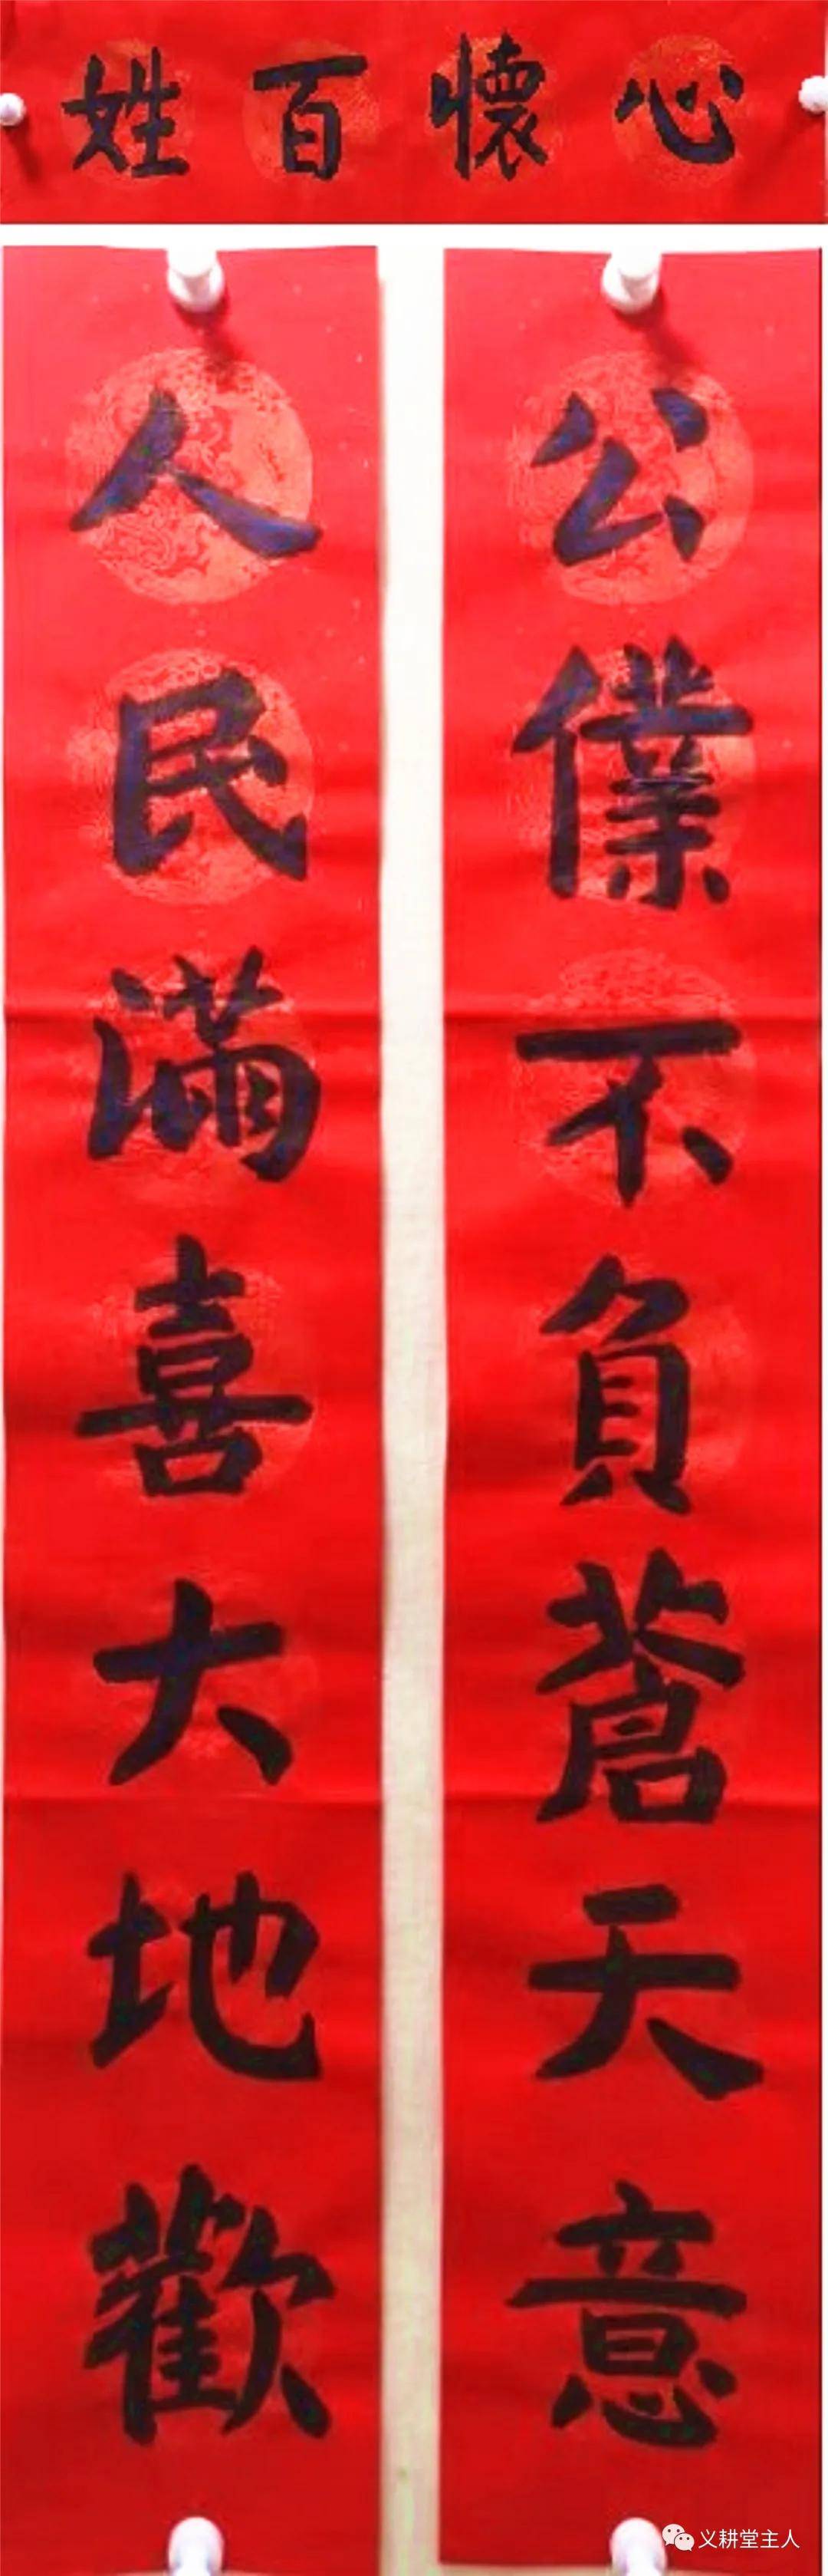 心懷百姓
公僕不負蒼天意
人民滿喜大地歡
义耕堂主人